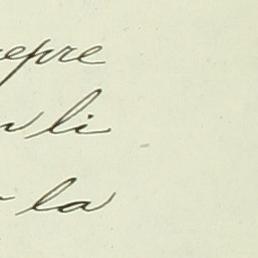 repre
li
la